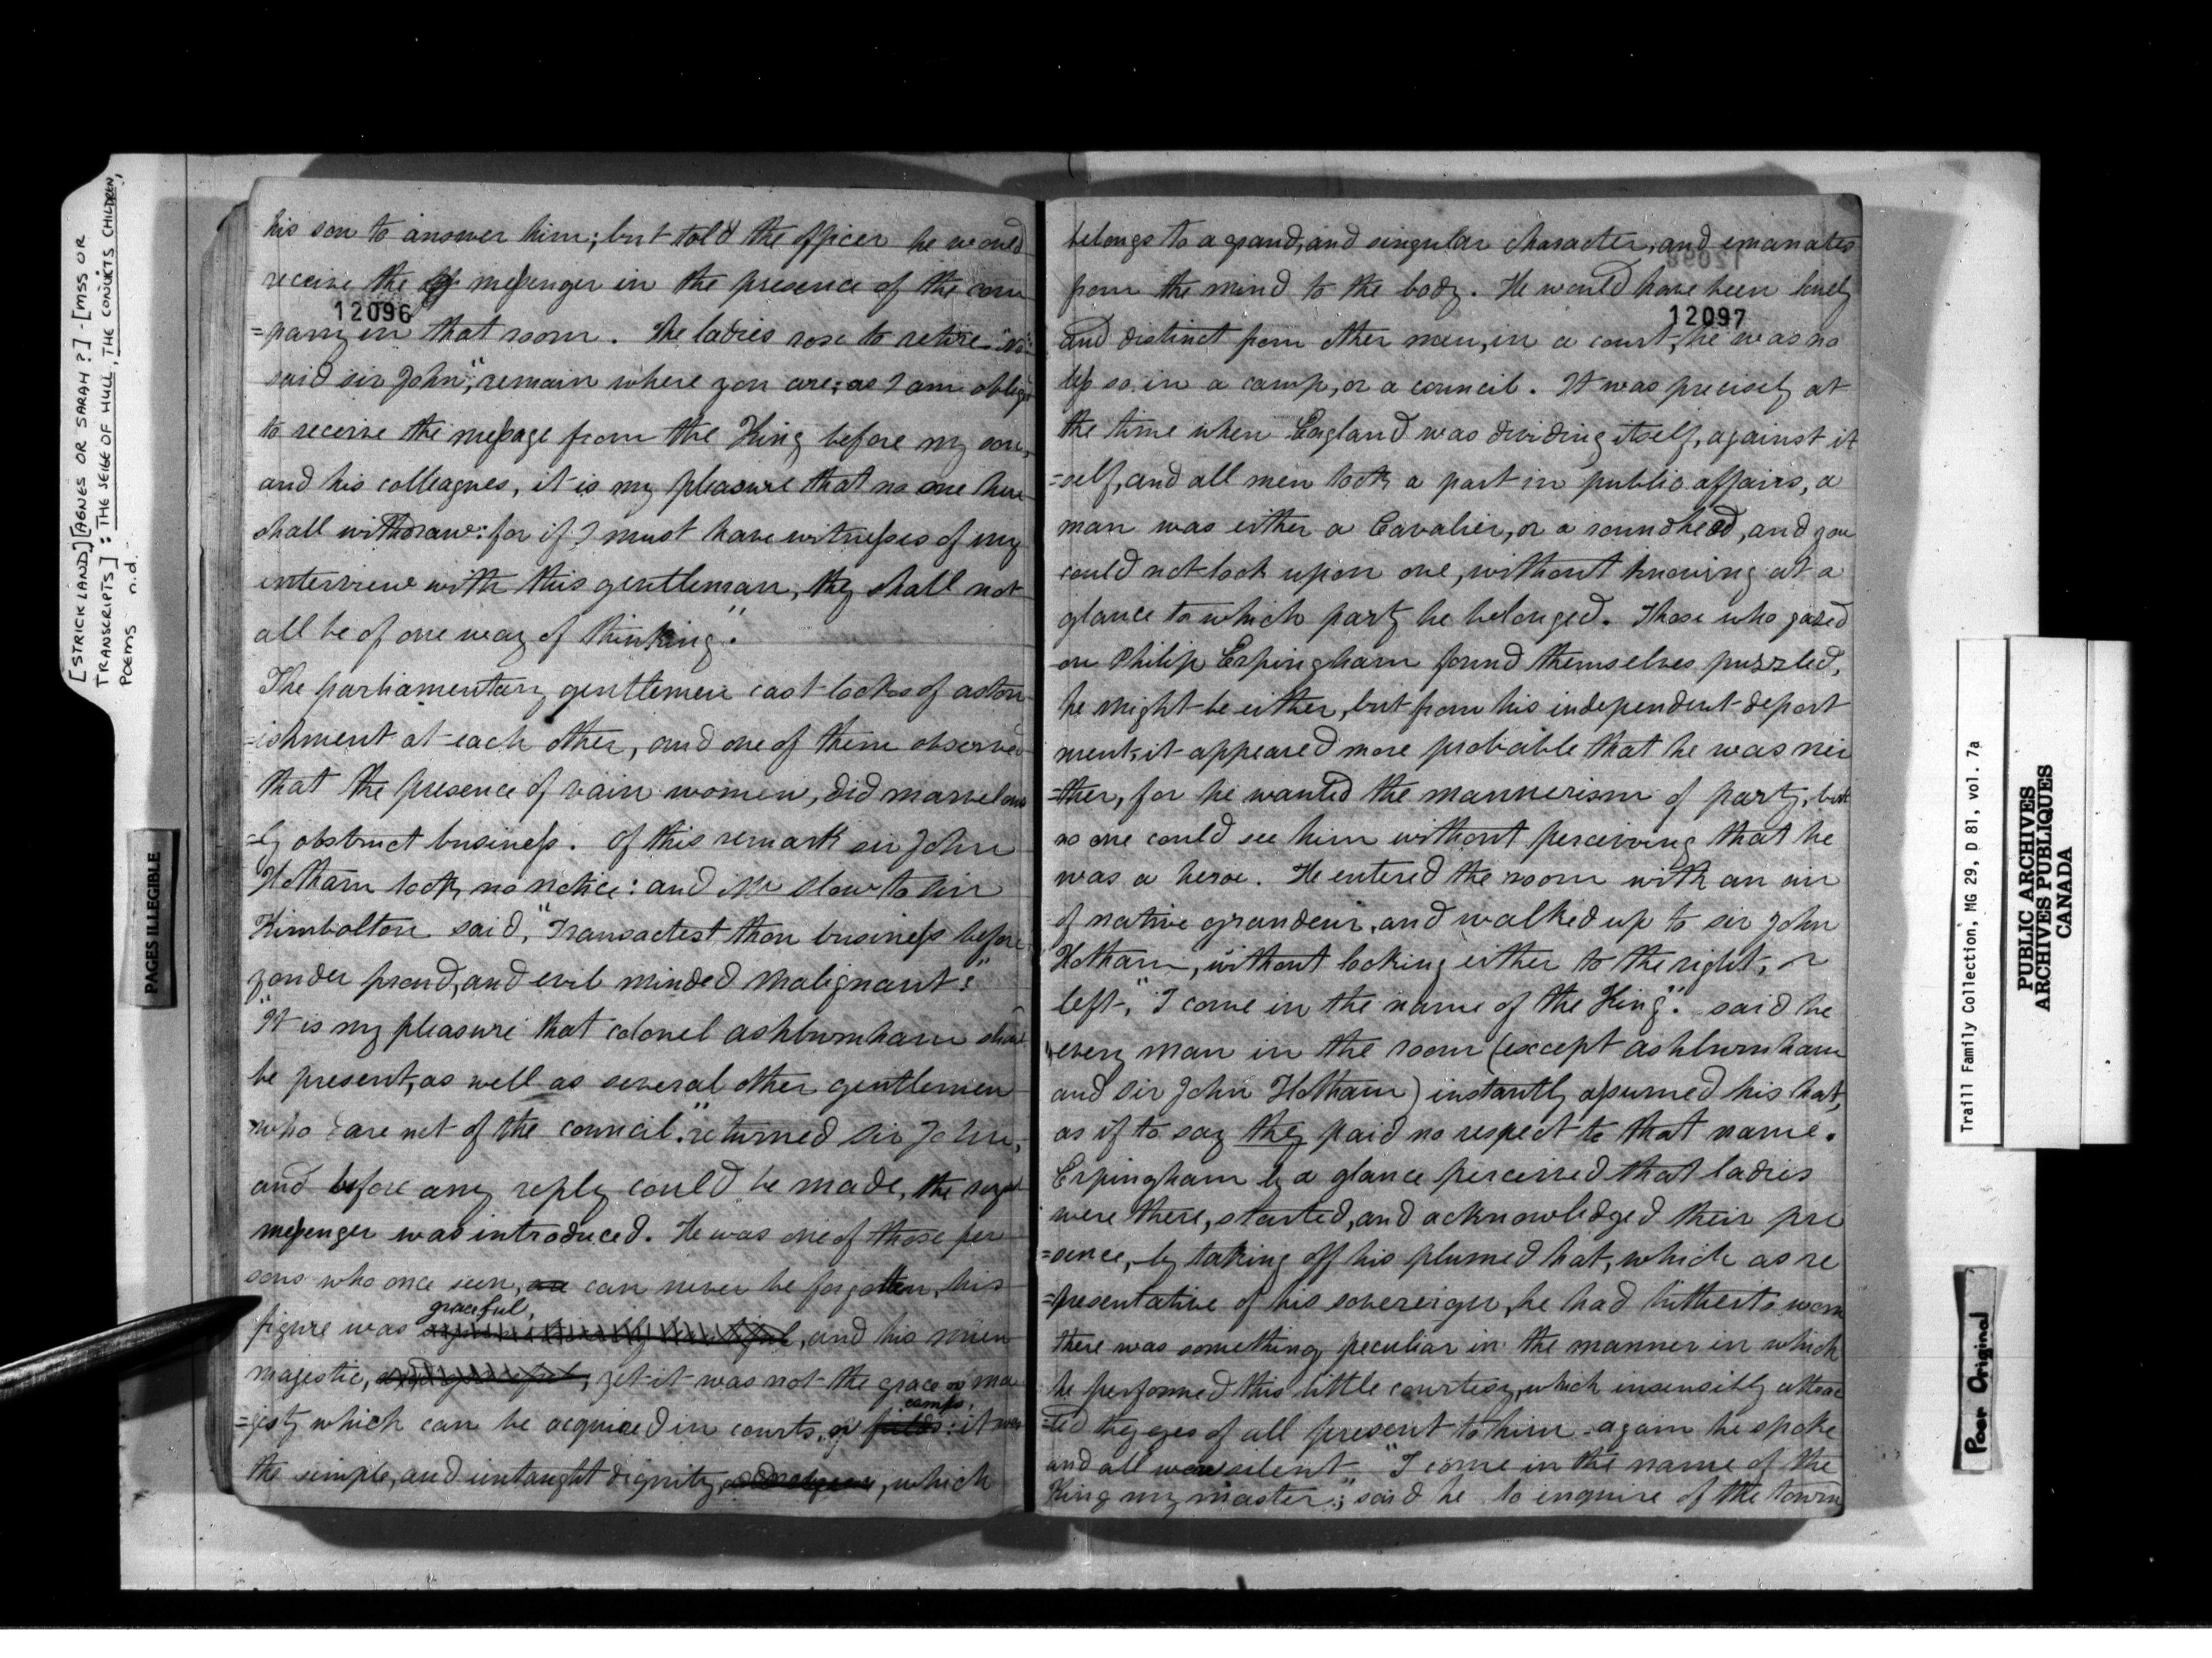 [STRICKLAND] [AGNES OR SARAH?] - [MSS OR
TRANSCRIPTS] : THE SEIGE OF HULL, THE CONVICTS CHILDREN,
POEMS n.d.
PAGES ILLEGIBLE
his son to answer him; but told the officer he would
receive the messenger in the presence of the com
12096
=pany in that room. The ladies rose to retire "No"
said sir John, "remain where you are; as I am oblig'd
to receive the message from the King before my son,
and his colleagues, it is my pleasure that no one here
shall withdraw: for if I must have witnesses of my
interview with this gentleman, they shall not
all be of one way of thinking."
The parliamentary gentlemen cast looks of aston
=ishment at each other, and one of them observed
that the presence of vain women, did marvelous
=ly obstruct business. Of this remark sir John
Hotham took no notice: and Mr Slow to Sin
Kimbolton said, "Transactest thou business before
yonder proud, and evil minded Malignant?"
"It is my pleasure that colonel ashburnham should
be present, as well as several other gentlemen
who are not of the council," returned Sir John,
and before any reply could be made, the royal
messenger was introduced. He was one of those per
sons who once seen, are can never be forgotten, his
graceful,
figure was , and his mien
majestic, , yet it was not the grace or ma
camps,
=jesty which can be acquired in courts, or fields: it was
the simple, and untaught dignity, , which
12098
belongs to a grand, and singular character, and emanates
from the mind to the body. He would have been lonely
12097
and distinct from other men, in a court, he was no
less so in a camp, or a council. It was precisely at
the time when England was dividing itself, against it
=self, and all men took a part in public affairs, a
man was either a Cavalier, or a roundhead, and you
could not look upon one, without knowing at a
glance to which party he belonged. Those who gazed
on Philip Erpingham found themselves puzzled,
he might be either, but from his independent deport
ment, it appeared more probable that he was nei
=ther, for he wanted the mannerism of party, but
no one could see him without perceiving that he
was a heroe. He entered the room with an air
of native grandeur, and walked up to sir John
Hotham, without looking either to the right, or
left, "I come in the name of the King". said he
every man in the room (except ashburnham
and Sir John Hotham) instantly assumed his hat,
as if to say they paid no respect to that name.
Erpingham by a glance perceived that ladies
were there, started, and acknowledged their pre
=sence, by taking off his plumed hat, which as re
=presentative of his sovereign, he had hitherto worn
there was something peculiar in the manner in which
he performed this little courtesy, which insensibly attrac
=ted the eyes of all present to him - again he spoke
and all were silent "I come in the name of the
King my master"; said he to inquire of the town
Traill Family Collection, MG 29, D 81, vol. 7a
PUBLIC ARCHIVES
ARCHIVES PUBLIQUES
CANADA
Poor Original